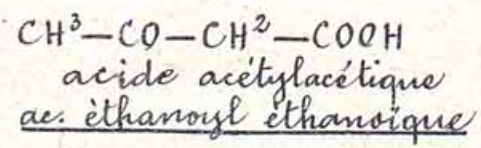 CH³—CO—CH²—COOH
acide acétylacétique
ac. èthanoyl èthanoïque